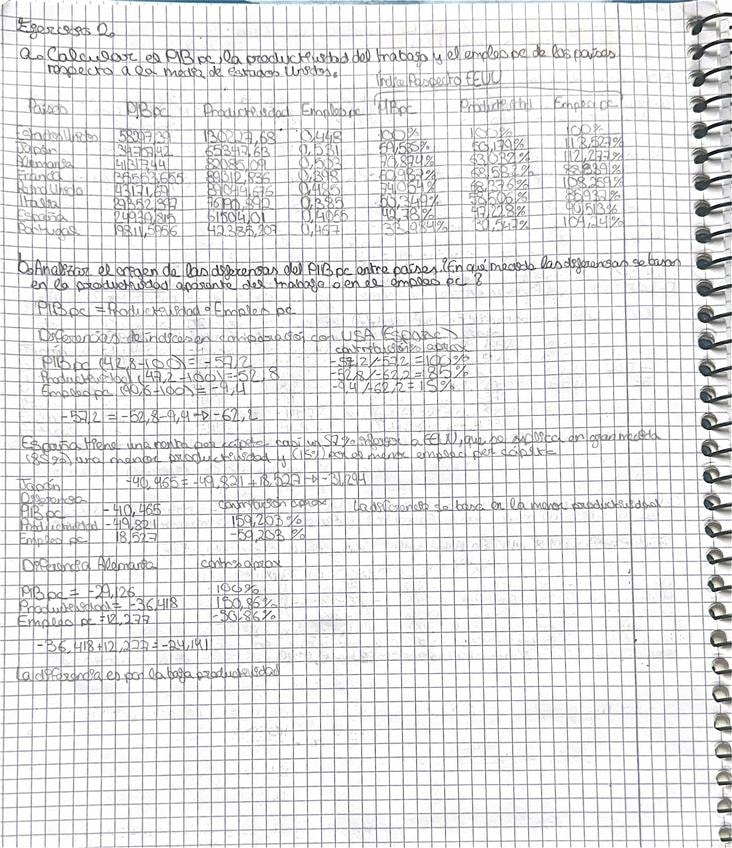 Ejercicio 2.
a. Calcular el PIB pc, la productividad del trabajo y el empleo pc de los países
respecto a la media de Estados Unidos.
Indice Respecto EEUU
Paises PIB pc Productividad Empleo pc PIB pc Productivi Empleo pc
Estados Unidos 130227,68 0,448 100% 100% 100%
Japón 65347,63 0,531 59,535% 50,179% 118,527%
Alemania 0,503 70,874% 112,277%
Francia 0,398
Reino Unido 43171,69 0,485 108,259%
Italia 0,385
España 24939,815 61504,01 0,4055 42,78% 47,228% 90,513%
Portugal 19811,5956 42385,207 0,467 104,24%
b. Analizar el origen de las diferencias del PIB pc entre países. ¿En qué medida las diferencias se basan
en la productividad aparente del trabajo o en el empleo pc?
PIB pc = Productividad · Empleo pc
Diferencias de indices en comparación con USA (España)
contribución aprox
PIB pc (42,8-100) = -57,2 -57,2/-57,2 = 100%
Productividad (47,2-100) = -52,8 -52,8/-62,2 = 85%
Empleo pc (90,6-100) = -9,4 -9,4/-62,2 = 15%
-57,2 = -52,8-9,4 → -62,2
España tiene una renta per cápita casi un 57% inferior a EEUU, que se explica en gran medida
(85%) una menor productividad y (15%) por el menor empleo per cápita
Japón -40,465 = -49,821 + 18,527 → -31,294
Diferencia
PIB pc -40,465 contribución aprox La diferencia se basa en la menor productividad
Productividad -49,821 159,203%
Empleo pc 18,527 -59,203%
Diferencia Alemania contri aprox
PIB pc = -29,126 100%
Productividad = -36,418 150,86%
Empleo pc = 12,277 -50,86%
-36,418+12,277 = -24,141
La diferencia es por la baja productividad